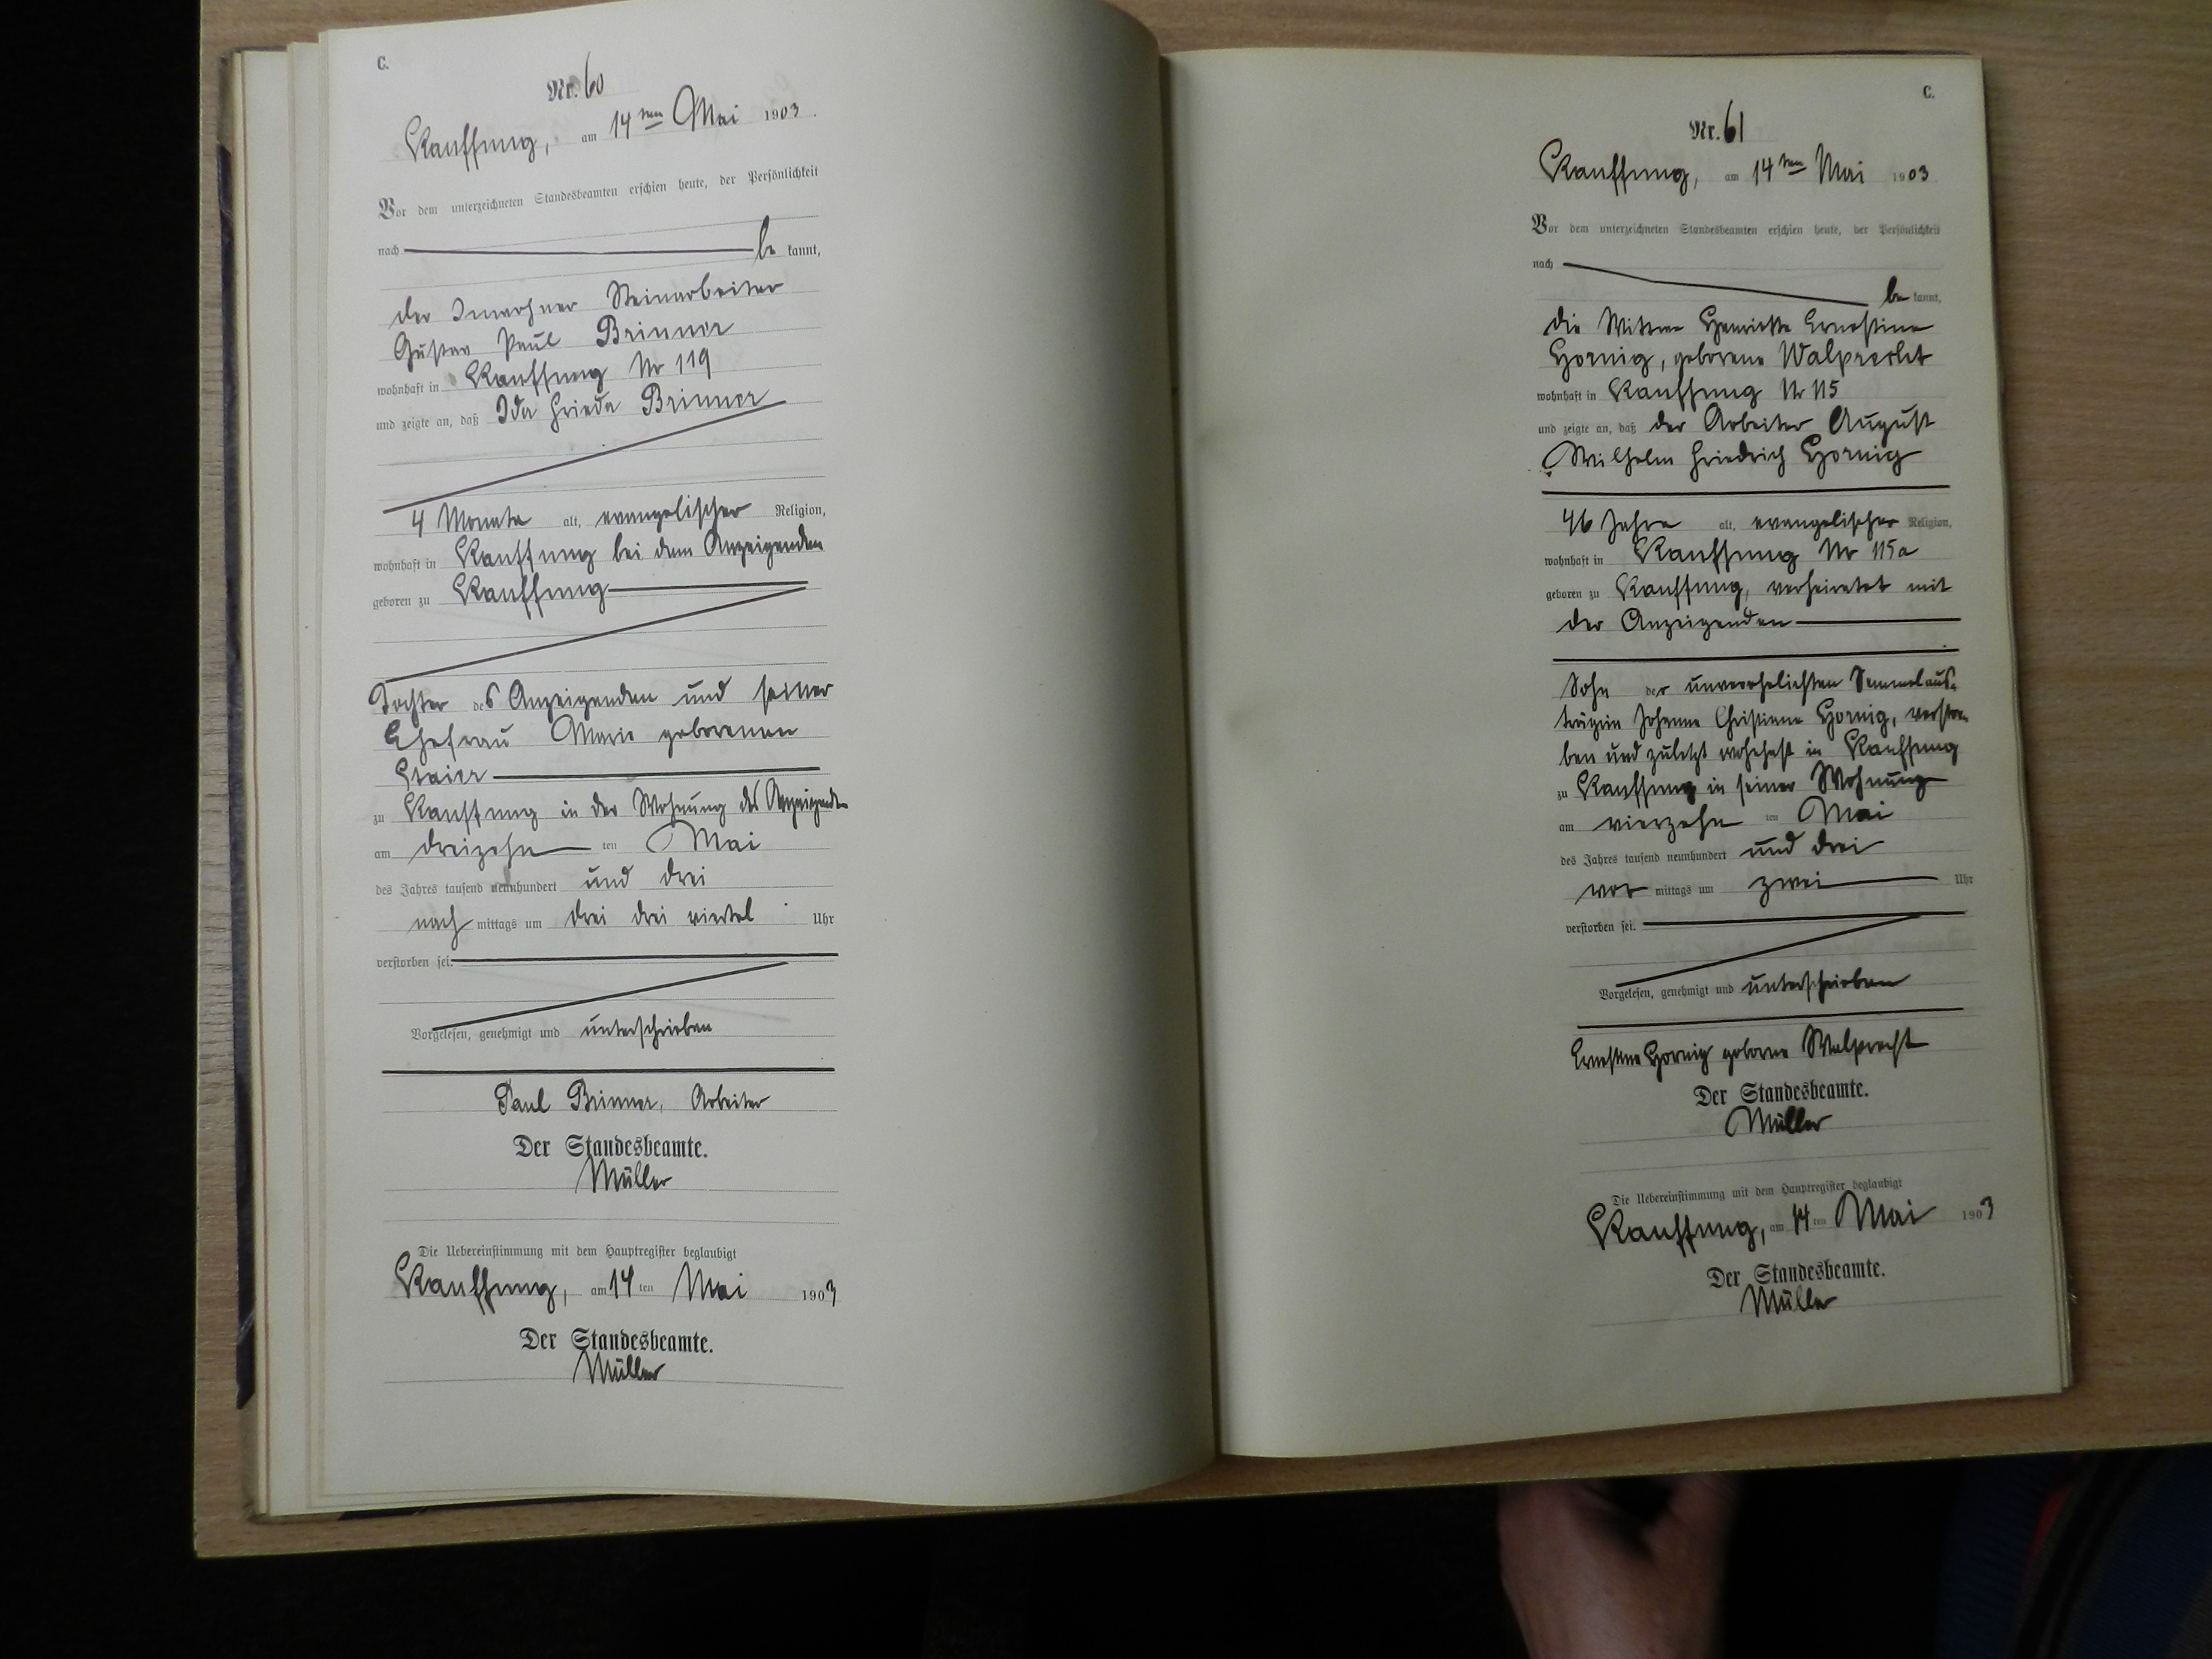 C.
Nr. 60
Kauffung, am 14ten Mai 1903.
Vor dem unterzeichneten Standesbeamten erschien heute, der Persönlichkeit
nach be kannt,
der Inwohner Steinarbeiter
Gustav Paul Brinner
wohnhaft in Kauffung Nr 119
und zeigte an, daß Ida Frieda Brinner
4 Monate alt, evangelischer Religion,
wohnhaft in Kauffung bei dem Anzeigenden
geboren zu Kauffung
Tochter des Anzeigenden und seiner
Ehefrau Marie geborenen
zu Kauffung in der Wohnung des Anzeigenden
am dreizehn ten Mai
des Jahres tausend neunhundert und drei
nach mittags um drei drei viertel Uhr
verstorben sei.
Vorgelesen, genehmigt und unterschrieben
Paul Brinner, Arbeiter
Der Standesbeamte.
Müller
Die Uebereinstimmung mit dem Hauptregister beglaubigt
Kauffung, am 14 ten Mai 1903
Der Standesbeamte.
Müller
C.
Nr. 61
Kauffung, am 14ten Mai 1903
Vor dem unterzeichneten Standesbeamten erschien heute, der Persönlichkeit
nach be kannt,
die Wittwe Henriette Ernestine
Hornig, geborene Walprecht
wohnhaft in Kauffung Nr 115
und zeigte an, daß der Arbeiter August
Wilhelm Friedrich Hornig
46 Jahre alt, evangelischer Religion,
wohnhaft in Kauffung Nr 115a
geboren zu Kauffung, verheiratet mit
der Anzeigenden
Sohn der unverehelichten Semmelaus-
trägerin Johanne Christiane Hornig, verstor-
ben und zuletzt wohnhaft in Kauffung
zu Kauffung in seiner Wohnung
am vierzehn ten Mai
des Jahres tausend neunhundert und drei
vor mittags um zwei Uhr
verstorben sei.
Vorgelesen, genehmigt und unterschrieben
Ernestine Hornig geborne Walprecht
Der Standesbeamte.
Müller
Die Uebereinstimmung mit dem Hauptregister beglaubigt
Kauffung, am 14 ten Mai 1903
Der Standesbeamte.
Müller